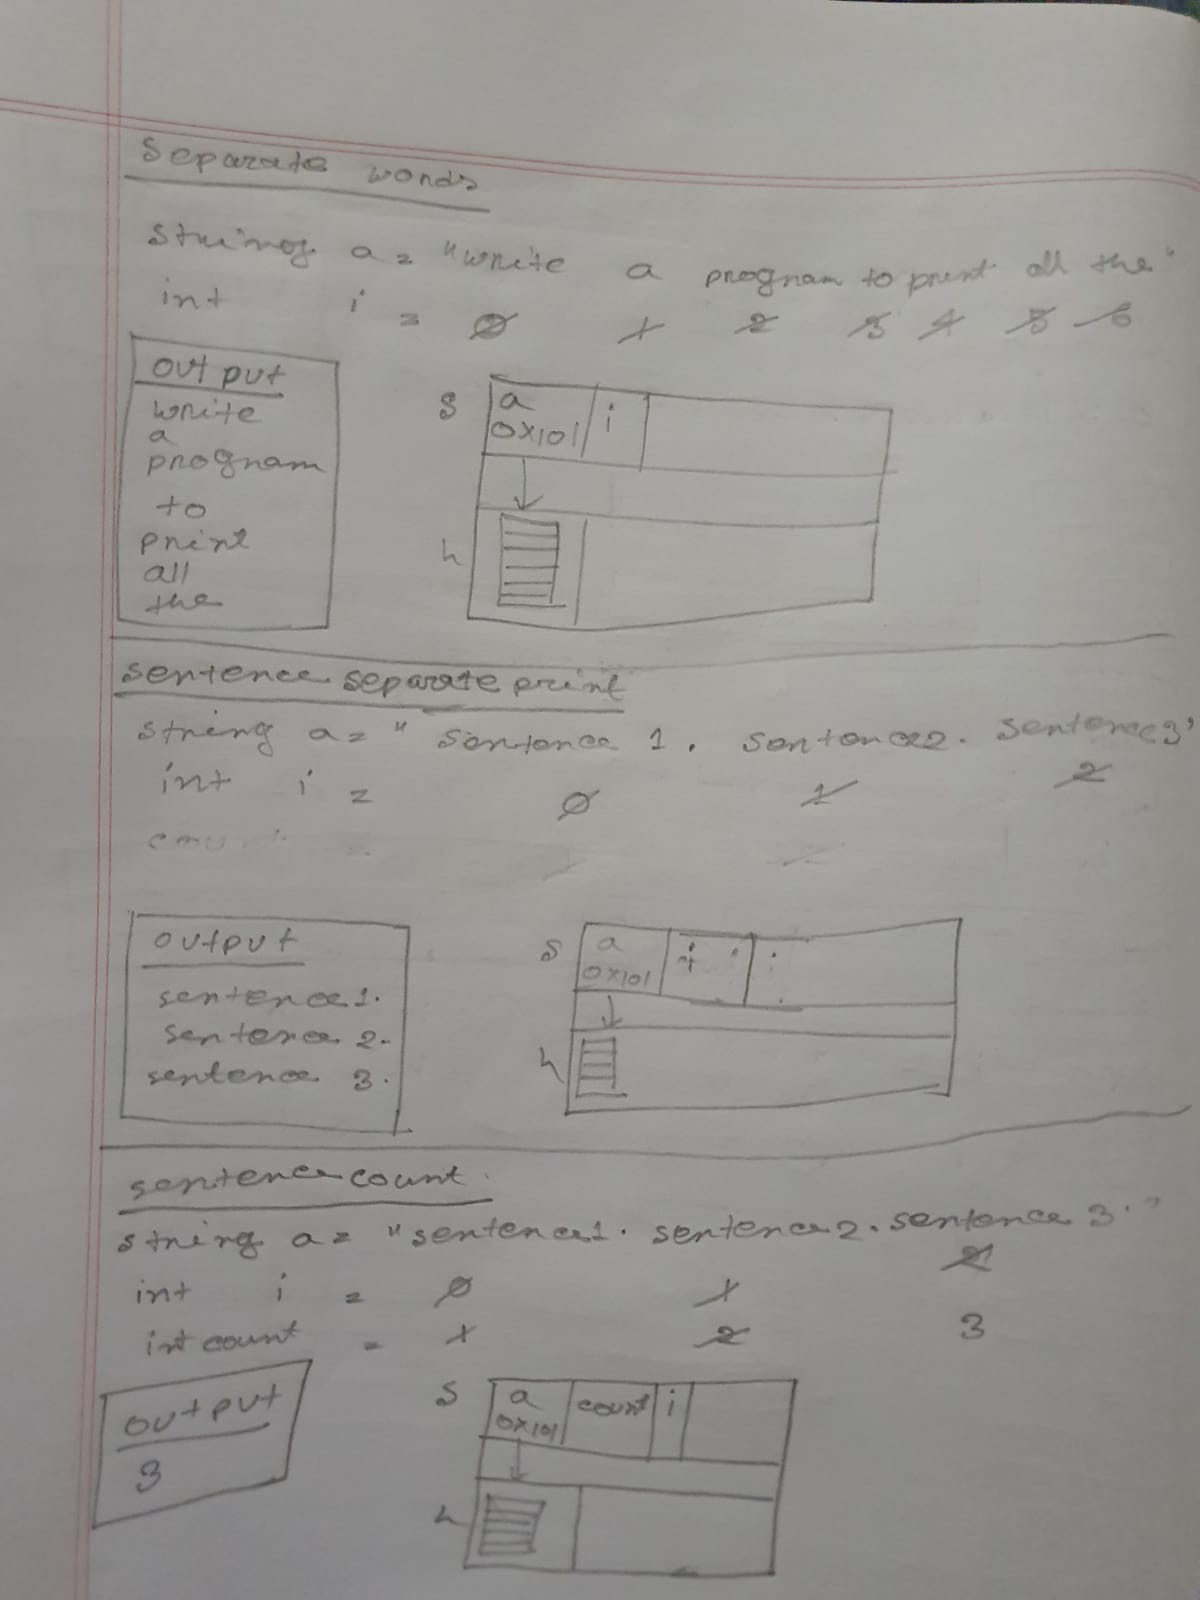 Separate words
string a = "write a program to print all the"
int i = 0 1 2 3 4 5 6
output
write
a
program
to
print
all
the
s a i
0x101
h
sentence separate print
string a = "sentence 1. sentence2. sentence3"
int i = 0 1 2
output
sentence1.
sentence 2.
sentence 3.
s a
0x101
h
sentence count.
string a = "sentence1. sentence2. sentence 3."
int i = 0 1 2
int count = 1 2 3
output
3
s a count i
0x101
h